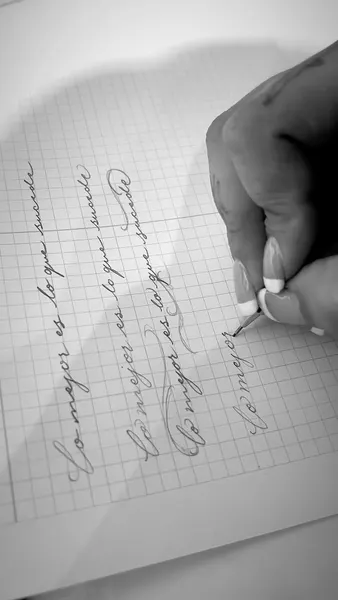 Lo mejor es lo que sucede
Lo mejor es lo que sucede
Lo mejor es lo que sucede
Lo mejor